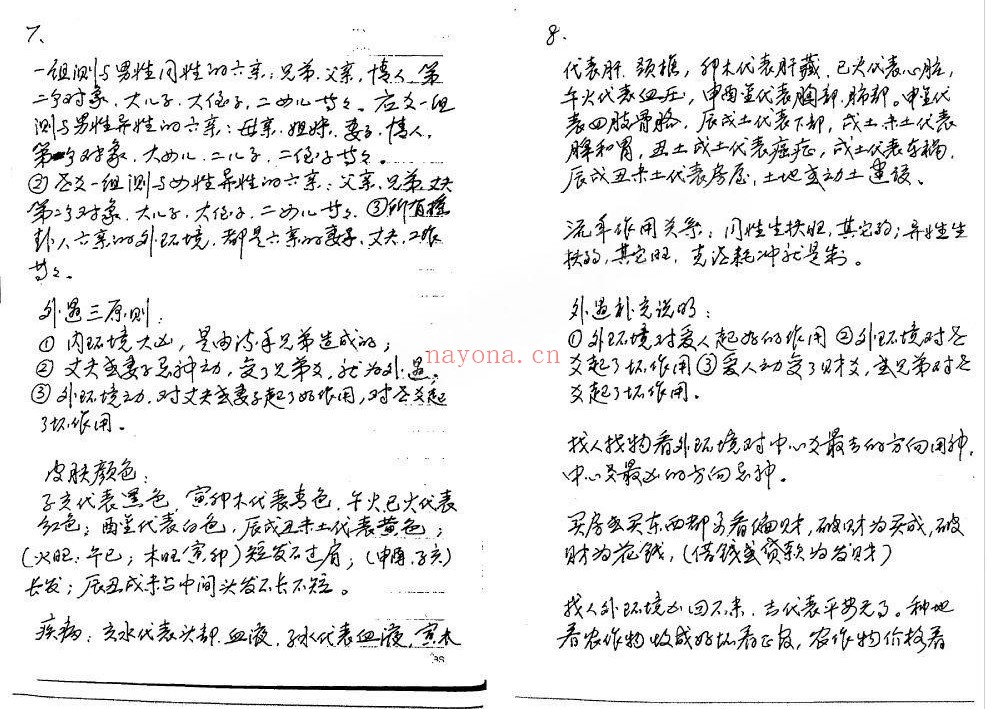 7、
一组测与男性同性的六亲：兄弟、父亲、情人、第
二个对象、大儿子、大侄子、二女儿等等。应爻一组
测与男性异性的六亲：母亲、姐妹、妻子、情人、
第一个对象、大女儿、二儿子、二侄子等等。
②世爻一组测与女性异性的六亲：父亲、兄弟、丈夫
第二个对象、大儿子、大侄子、二女儿等等。③所有摇
卦人六亲的外环境，都是六亲的妻子、丈夫、工作
等等。
外遇三原则：
①内环境大凶，是由流年兄弟造成的；
②丈夫或妻子忌神动，变了兄弟爻，就为外遇。
③外环境动，对丈夫或妻子起了好作用，对世爻起
了坏作用。
皮肤颜色：
子亥代表黑色，寅卯木代表青色，午火巳火代表
红色；酉金代表白色，辰戌丑未土代表黄色；
(火旺：午巳；木旺寅卯)短发不过肩；(申酉、子亥)
长发；辰丑戌未占中间头发不长不短。
疾病：亥水代表头部、血液，子水代表血液，寅木
nayona.cn
8、
代表肝、颈椎，卯木代表肝藏，巳火代表心脏，
午火代表血压，申酉金代表胸部、肺部。申金代
表四肢骨骼，辰戌土代表下部，戌土未土代表
脾和胃，丑土戌土代表癌症，戌土代表车祸，
辰戌丑未土代表房屋，土地或动土建设。
流年作用关系：同性生扶旺，其它弱；异性生
扶弱，其它旺，克泄耗冲就是制。
外遇补充说明：
①外环境对爱人起好的作用②外环境对世
爻起了坏作用③爱人动变了财爻，或兄弟对世
爻起了坏作用。
找人找物看外环境对中心爻最吉的方向用神，
中心爻最凶的方向忌神。
买房或买东西都要看偏财，破财为买成，破
财为花钱，(借钱或贷款为发财)
找人外环境凶回不来，吉代表平安无事。种地
看农作物收成好坏看正财，农作物价格看
nayona.cn